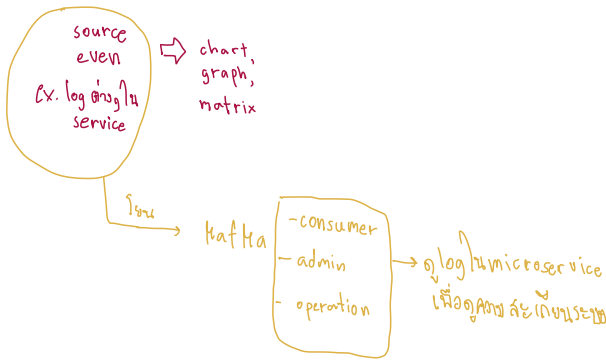 source
even
Ex. log ต่างๆใน
service
chart,
graph,
matrix
โยน
kafka
-consumer
- admin
- operation
ดู log ในmicroservice
เพื่อดูความสะเถียนระบบ